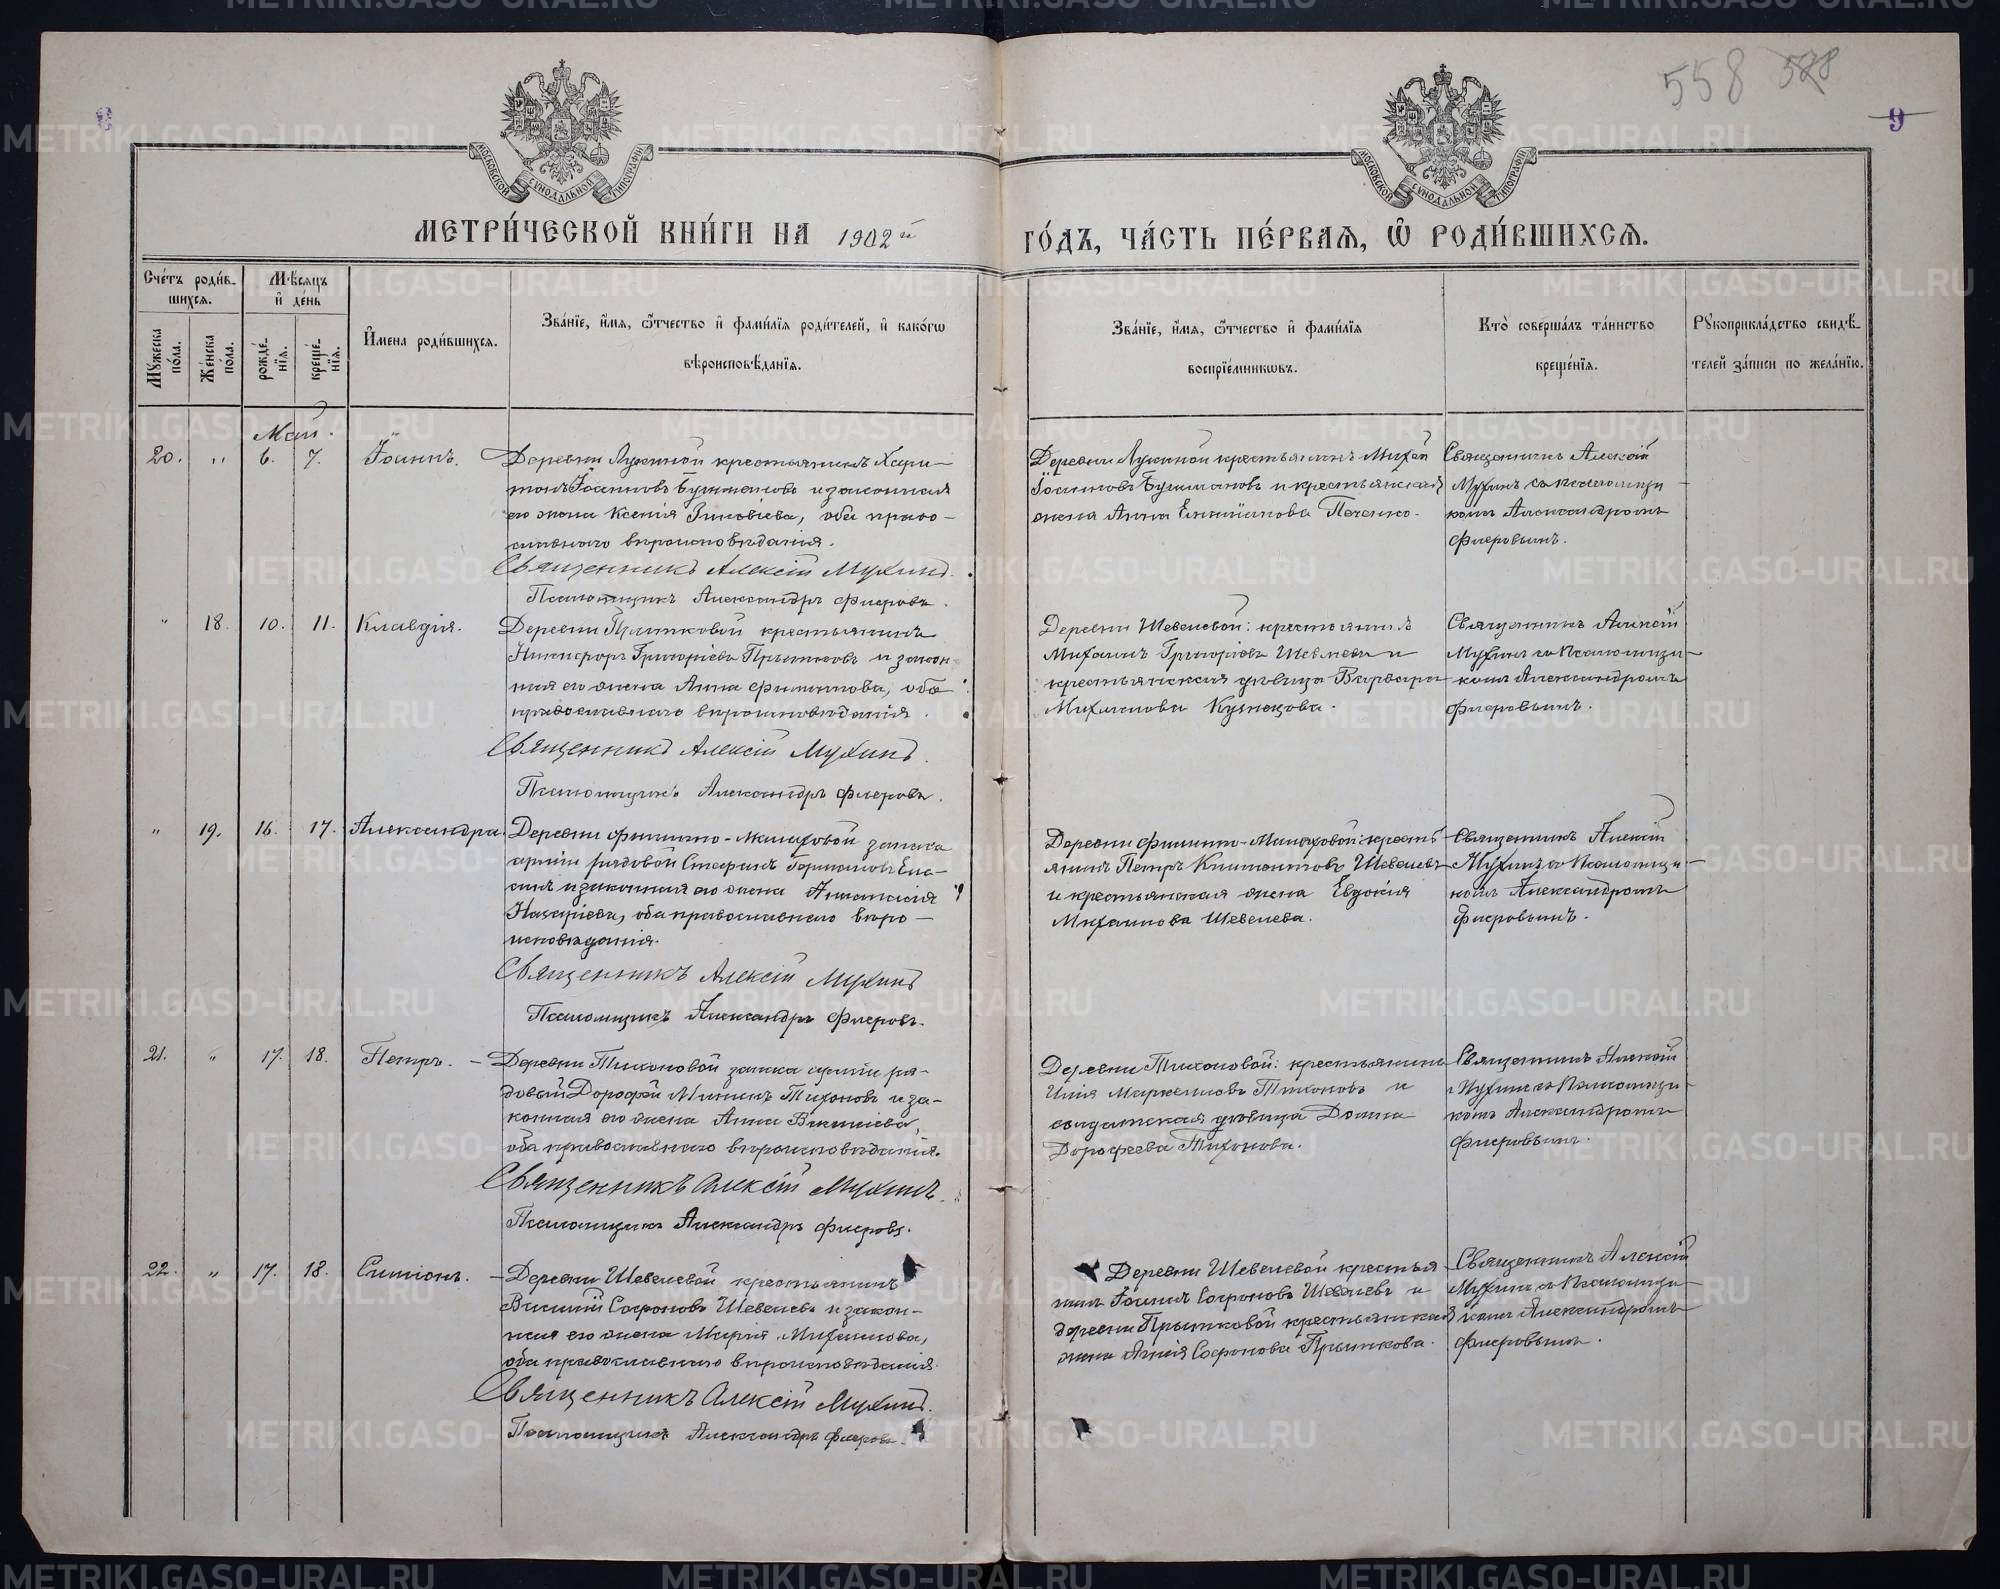 558 528
9
МОСКОВСКОЙ СѴНОДАЛЬНОЙ ТИПОГРАФІИ
МОСКОВСКОЙ СѴНОДАЛЬНОЙ ТИПОГРАФІИ
МЕТРИ́ЧЕСКОЙ КНИ́ГИ НА 1902й ГО́ДЪ, ЧА́СТЬ ПЕ́РВАЯ, Ѡ РОДИ́ВШИХСЯ.
Сче́тъ роди́в-
шихся.
Мѣ́сяцъ
и де́нь
Мꙋжеска по́ла.
Же́нска по́ла.
рожде́нїя.
креще́нїя.
И҆мена роди́вшихся.
Зва́нїе, и҆́мя, ѻ҆́тчество и҆ фами́лїя роди́телей, и҆ како́гѡ
вѣроисповѣ́данїя.
Зва́нїе, и҆́мя, ѻ҆́тчество и҆ фами́лїя
воспрїе́мникѡвъ.
Кто̀ соверша́лъ та́инство
креще́нїя.
Рꙋкоприкла́дство свидѣ́-
телей за́писи по жела́нїю.
Май.
20. " 6. 7. Іоаннъ.
Деревни Лукиной крестьянинъ Хари-
тонъ Іоанновъ и законная
его жена Ксенія Зиновіева, оба право-
славнаго вѣроисповѣданія.
Священникъ Алексій Мухинъ.
Псаломщикъ Александръ Флеровъ.
Деревни Лукиной крестьянинъ
Іоанновъ и крестьянская
жена Анна
Священникъ Алексій
Мухинъ съ псаломщи-
комъ Александромъ
Флеровымъ.
" 18. 10. 11. Клавдія.
Деревни крестьянинъ
Никифоръ Григоріевъ Прытковъ и закон-
ная его жена Анна Филиппова, оба
православнаго вѣроисповѣданія.
Священникъ Алексій Мухинъ.
Псаломщикъ Александръ Флеровъ.
Деревни Шевелевой: крестьянинъ
Михаилъ Григоріевъ Шевелевъ и
крестьянская дѣвица Варвара
Михаилова Кузнецова.
Священникъ Алексій
Мухинъ съ Псаломщи-
комъ Александромъ
Флеровымъ.
" 19. 16. 17. Александра.
Деревни запаса
арміи рядовой Стефанъ Ела-
 и законная его жена Анастасія
Назаріева, оба православнаго вѣро-
исповѣданія.
Священникъ Алексій Мухинъ
Псаломщикъ Александръ Флеровъ.
Деревни кресть-
янинъ Петръ Климентовъ Шевелевъ
и крестьянская жена Евдокія
Михаилова Шевелева.
Священникъ Алексій
Мухинъ съ Псаломщи-
комъ Александромъ
Флеровымъ.
21. " 17. 18. Петръ.
Деревни Тихоновой запаса арміи ря-
довый Дорофей Мининъ Тихоновъ и за-
конная его жена Анна
оба православнаго вѣроисповѣданія.
Священникъ Алексій Мухинъ.
Псаломщикъ Александръ Флеровъ.
Деревни Тихоновой: крестьянинъ
Илія Маркелловъ Тихоновъ и
солдатская дѣвица Домна
Дорофеева Тихонова.
Священникъ Алексій
Мухинъ съ Псаломщи-
комъ Александромъ
Флеровымъ.
22. " 17. 18. Симеонъ.
Деревни Шевелевой крестьянинъ
Василій Софроновъ Шевелевъ и закон-
ная его жена Марія Михаилова,
оба православнаго вѣроисповѣданія.
Священникъ Алексій Мухинъ.
Псаломщикъ Александръ Флеровъ.
Деревни Шевелевой крестья-
нинъ Іоаннъ Софроновъ Шевелевъ и
деревни Прытковой крестьянская
жена Софронова Прыткова.
Священникъ Алексій
Мухинъ съ Псаломщи-
комъ Александромъ
Флеровымъ.
METRIKI.GASO-URAL.RU